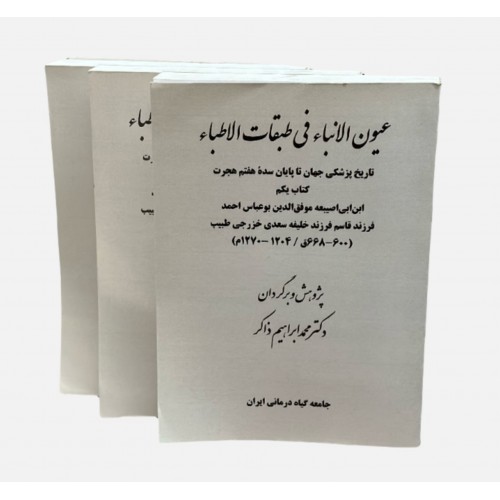 عیون الانباء فی طبقات الاطباء
تاریخ پزشکی جهان تا پایان سدهٔ هفتم هجرت
کتاب یکم
ابن‌ابی‌اصیبعه موفق‌الدین بوعباس احمد
فرزند قاسم فرزند خلیفه سعدی خزرجی طبیب
(۶۰۰-۶۶۸ق / ۱۲۰۴-۱۲۷۰م)
پژوهش و برگردان
دکتر محمد ابراهیم ذاکر
جامعه گیاه درمانی ایران